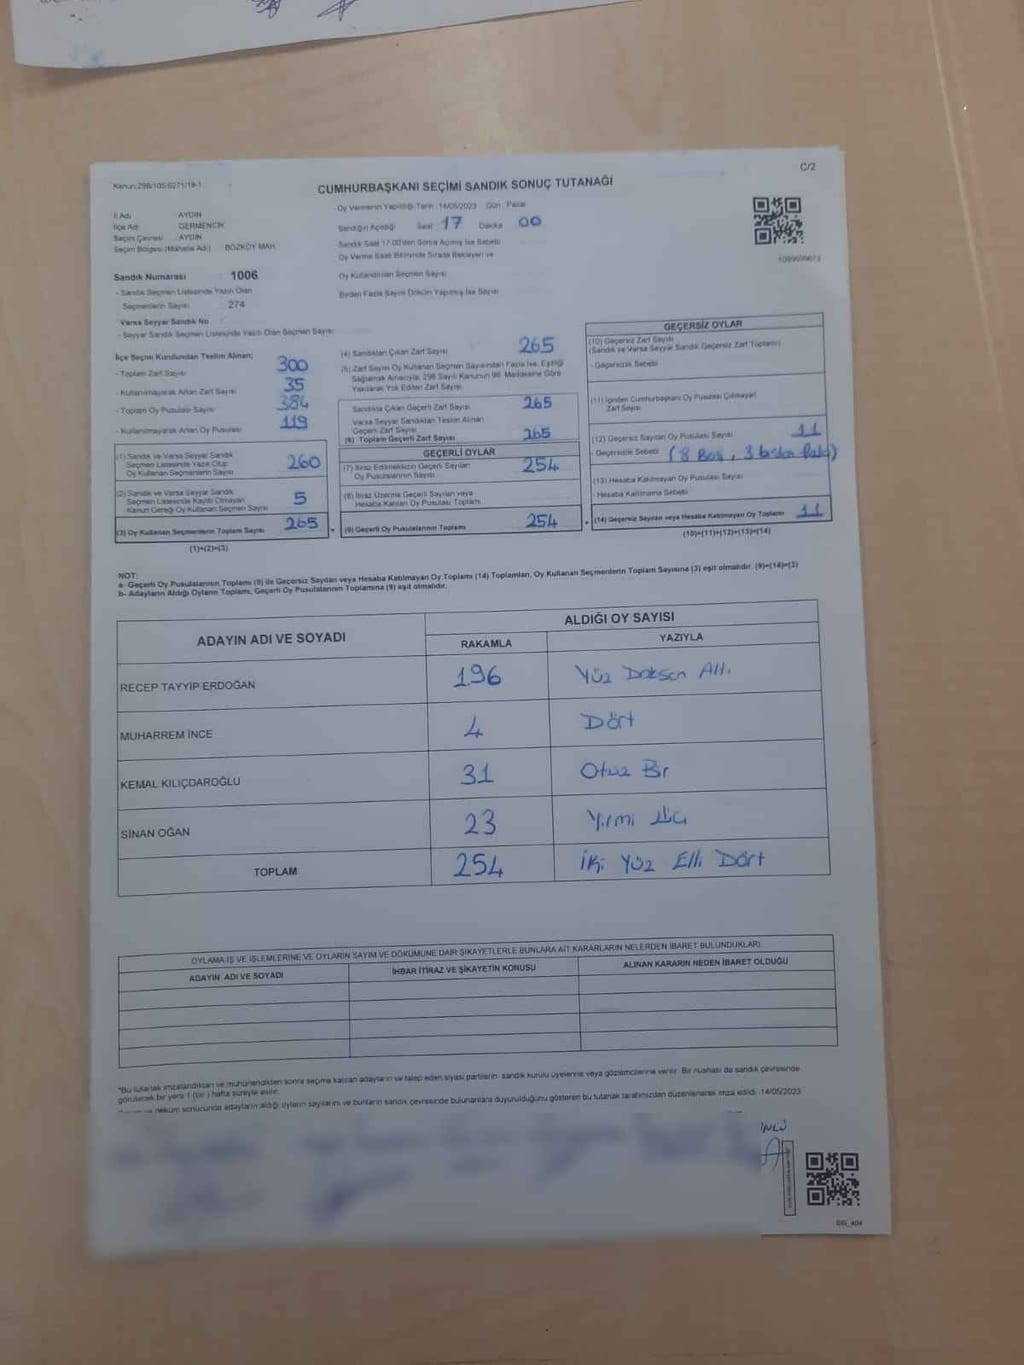 Kanun:298/105 6271/19-1
C/2
CUMHURBAŞKANI SEÇİMİ SANDIK SONUÇ TUTANAĞI
İl Adı : AYDIN
İlçe Adı : GERMENCİK
Seçim Çevresi : AYDIN
Seçim Bölgesi (Mahalle Adı) : BOZKÖY MAH.
Oy Vermenin Yapıldığı Tarih : 14/05/2023 Gün : Pazar
Sandığın Açıldığı Saat 17 Dakika 00
Sandık Saat 17:00'den Sonra Açılmış İse Sebebi
Oy Verme Saati Bitiminde Sırada Bekleyen ve
Oy Kullandırılan Seçmen Sayısı
Birden Fazla Sayım Döküm Yapılmış İse Sayısı
Sandık Numarası : 1006
- Sandık Seçmen Listesinde Yazılı Olan
Seçmenlerin Sayısı : 274
Varsa Seyyar Sandık No
- Seyyar Sandık Seçmen Listesinde Yazılı Olan Seçmen Sayısı
İlçe Seçim Kurulundan Teslim Alınan;
- Toplam Zarf Sayısı 300
- Kullanılmayarak Artan Zarf Sayısı 35
- Toplam Oy Pusulası Sayısı 384
- Kullanılmayarak Artan Oy Pusulası 119
(1) Sandık ve Varsa Seyyar Sandık
Seçmen Listesinde Yazılı Olup
Oy Kullanan Seçmenlerin Sayısı 260
(2) Sandık ve Varsa Seyyar Sandık
Seçmen Listesinde Kayıtlı Olmayan
Kanun Gereği Oy Kullanan Seçmen Sayısı 5
(3) Oy Kullanan Seçmenlerin Toplam Sayısı 265
(1)+(2)=(3)
(4) Sandıktan Çıkan Zarf Sayısı 265
(5) Zarf Sayısı Oy Kullanan Seçmen Sayısından Fazla İse, Eşitliği
Sağlamak Amacıyla, 298 Sayılı Kanunun 98. Maddesine Göre
Yakılarak Yok Edilen Zarf Sayısı
Sandıkta Çıkan Geçerli Zarf Sayısı 265
Varsa Seyyar Sandıktan Teslim Alınan
Geçerli Zarf Sayısı
(6) Toplam Geçerli Zarf Sayısı 265
GEÇERLİ OYLAR
(7) İtiraz Edilmeksizin Geçerli Sayılan
Oy Pusulalarının Sayısı 254
(8) İtiraz Üzerine Geçerli Sayılan veya
Hesaba Katılan Oy Pusulası Toplamı
(9) Geçerli Oy Pusulalarının Toplamı 254
GEÇERSİZ OYLAR
(10) Geçersiz Zarf Sayısı
(Sandık ve Varsa Seyyar Sandık Geçersiz Zarf Toplamı)
- Geçersizlik Sebebi
(11) İçinden Cumhurbaşkanı Oy Pusulası Çıkmayan
Zarf Sayısı
(12) Geçersiz Sayılan Oy Pusulası Sayısı 11
- Geçersizlik Sebebi (8 Boş, 3 birden fazla)
(13) Hesaba Katılmayan Oy Pusulası Sayısı
- Hesaba Katılmama Sebebi
(14) Geçersiz Sayılan veya Hesaba Katılmayan Oy Toplamı 11
(10)+(11)+(12)+(13)=(14)
NOT:
a- Geçerli Oy Pusulalarının Toplamı (9) ile Geçersiz Sayılan veya Hesaba Katılmayan Oy Toplamı (14) Toplamları, Oy Kullanan Seçmenlerin Toplam Sayısına (3) eşit olmalıdır. (9)+(14)=(3)
b- Adayların Aldığı Oyların Toplamı, Geçerli Oy Pusulalarının Toplamına (9) eşit olmalıdır.
ADAYIN ADI VE SOYADI
ALDIĞI OY SAYISI
RAKAMLA YAZIYLA
RECEP TAYYİP ERDOĞAN 196 Yüz Doksan Altı
MUHARREM İNCE 4 Dört
KEMAL KILIÇDAROĞLU 31 Otuz Bir
SİNAN OĞAN 23 Yirmi Üç
TOPLAM 254 İki Yüz Elli Dört
OYLAMA İŞ VE İŞLEMLERİNE VE OYLARIN SAYIM VE DÖKÜMÜNE DAİR ŞİKAYETLERLE BUNLARA AİT KARARLARIN NELERDEN İBARET BULUNDUKLARI
ADAYIN ADI VE SOYADI İHBAR İTİRAZ VE ŞİKAYETİN KONUSU ALINAN KARARIN NEDEN İBARET OLDUĞU
*Bu tutanak imzalandıktan ve mühürlendikten sonra seçime katılan adayların ve talep eden siyasi partilerin sandık kurulu üyelerine veya gözlemcilerine verilir. Bir nüshası da sandık çevresinde
görülecek bir yere 1 (bir) hafta süreyle asılır.
döküm sonucunda adayların aldığı oyların sayılarını ve bunların sandık çevresinde bulunanlara duyurulduğunu gösteren bu tutanak tarafımızdan düzenlenerek imza edildi. 14/05/2023